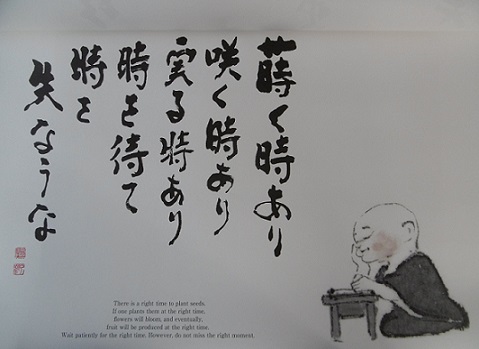 蒔く時あり
咲く時あり
実る時あり
時を待て
時を
失なうな
There is a right time to plant seeds.
If one plants them at the right time,
flowers will bloom, and eventually,
fruit will be produced at the right time.
Wait patiently for the right time. However, do not miss the right moment.